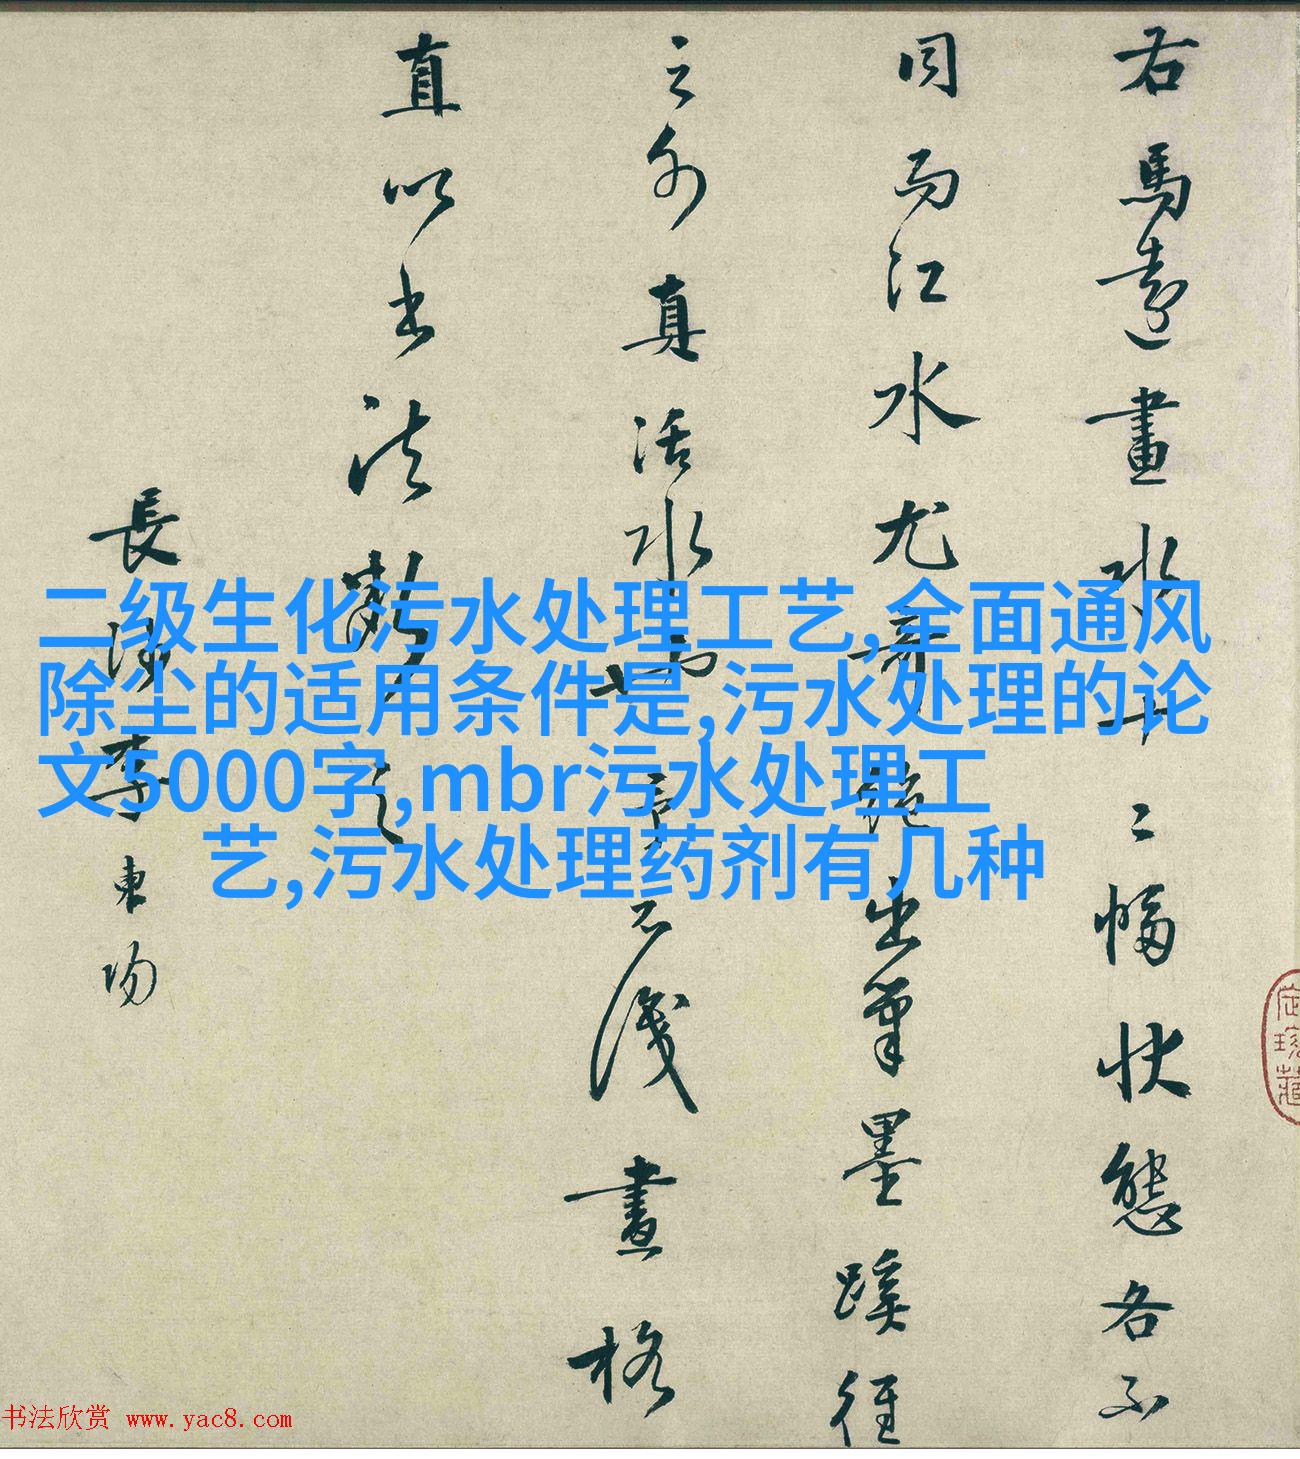 右馬遠畫水十二幅狀態各不
同而江水尤奇絕出筆墨蹊徑
之外真活水也予不識畫格
直以書法觀之
長沙李東陽
二级生化污水处理工艺,全面通风
除尘的适用条件是,污水处理的论
文5000字,mbr污水处理工
艺,污水处理药剂有几种
书法欣赏 www.yac8.com